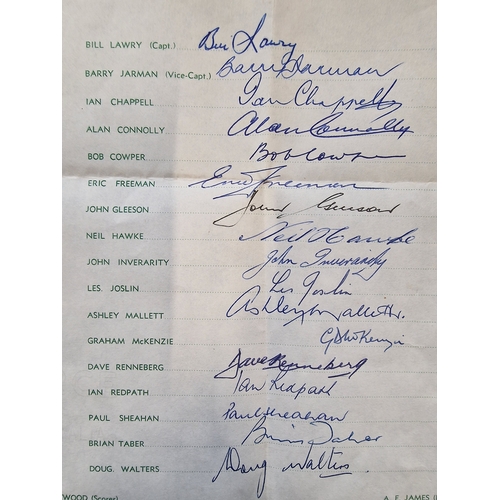 BILL LAWRY (Capt.) Bill Lawry
BARRY JARMAN (Vice-Capt.) Barry Jarman
IAN CHAPPELL Ian Chappell
ALAN CONNOLLY Alan Connolly
BOB COWPER Bob Cowper
ERIC FREEMAN Eric Freeman
JOHN GLEESON John Gleeson
NEIL HAWKE Neil Hawke
JOHN INVERARITY John Inverarity
LES. JOSLIN Les Joslin
ASHLEY MALLETT Ashley Mallett
GRAHAM McKENZIE G D McKenzie
DAVE RENNEBERG Dave Renneberg
IAN REDPATH Ian Redpath
PAUL SHEAHAN Paul Sheahan
BRIAN TABER Brian Taber
DOUG. WALTERS Doug Walters.
WOOD (Scorer) A. E. JAMES